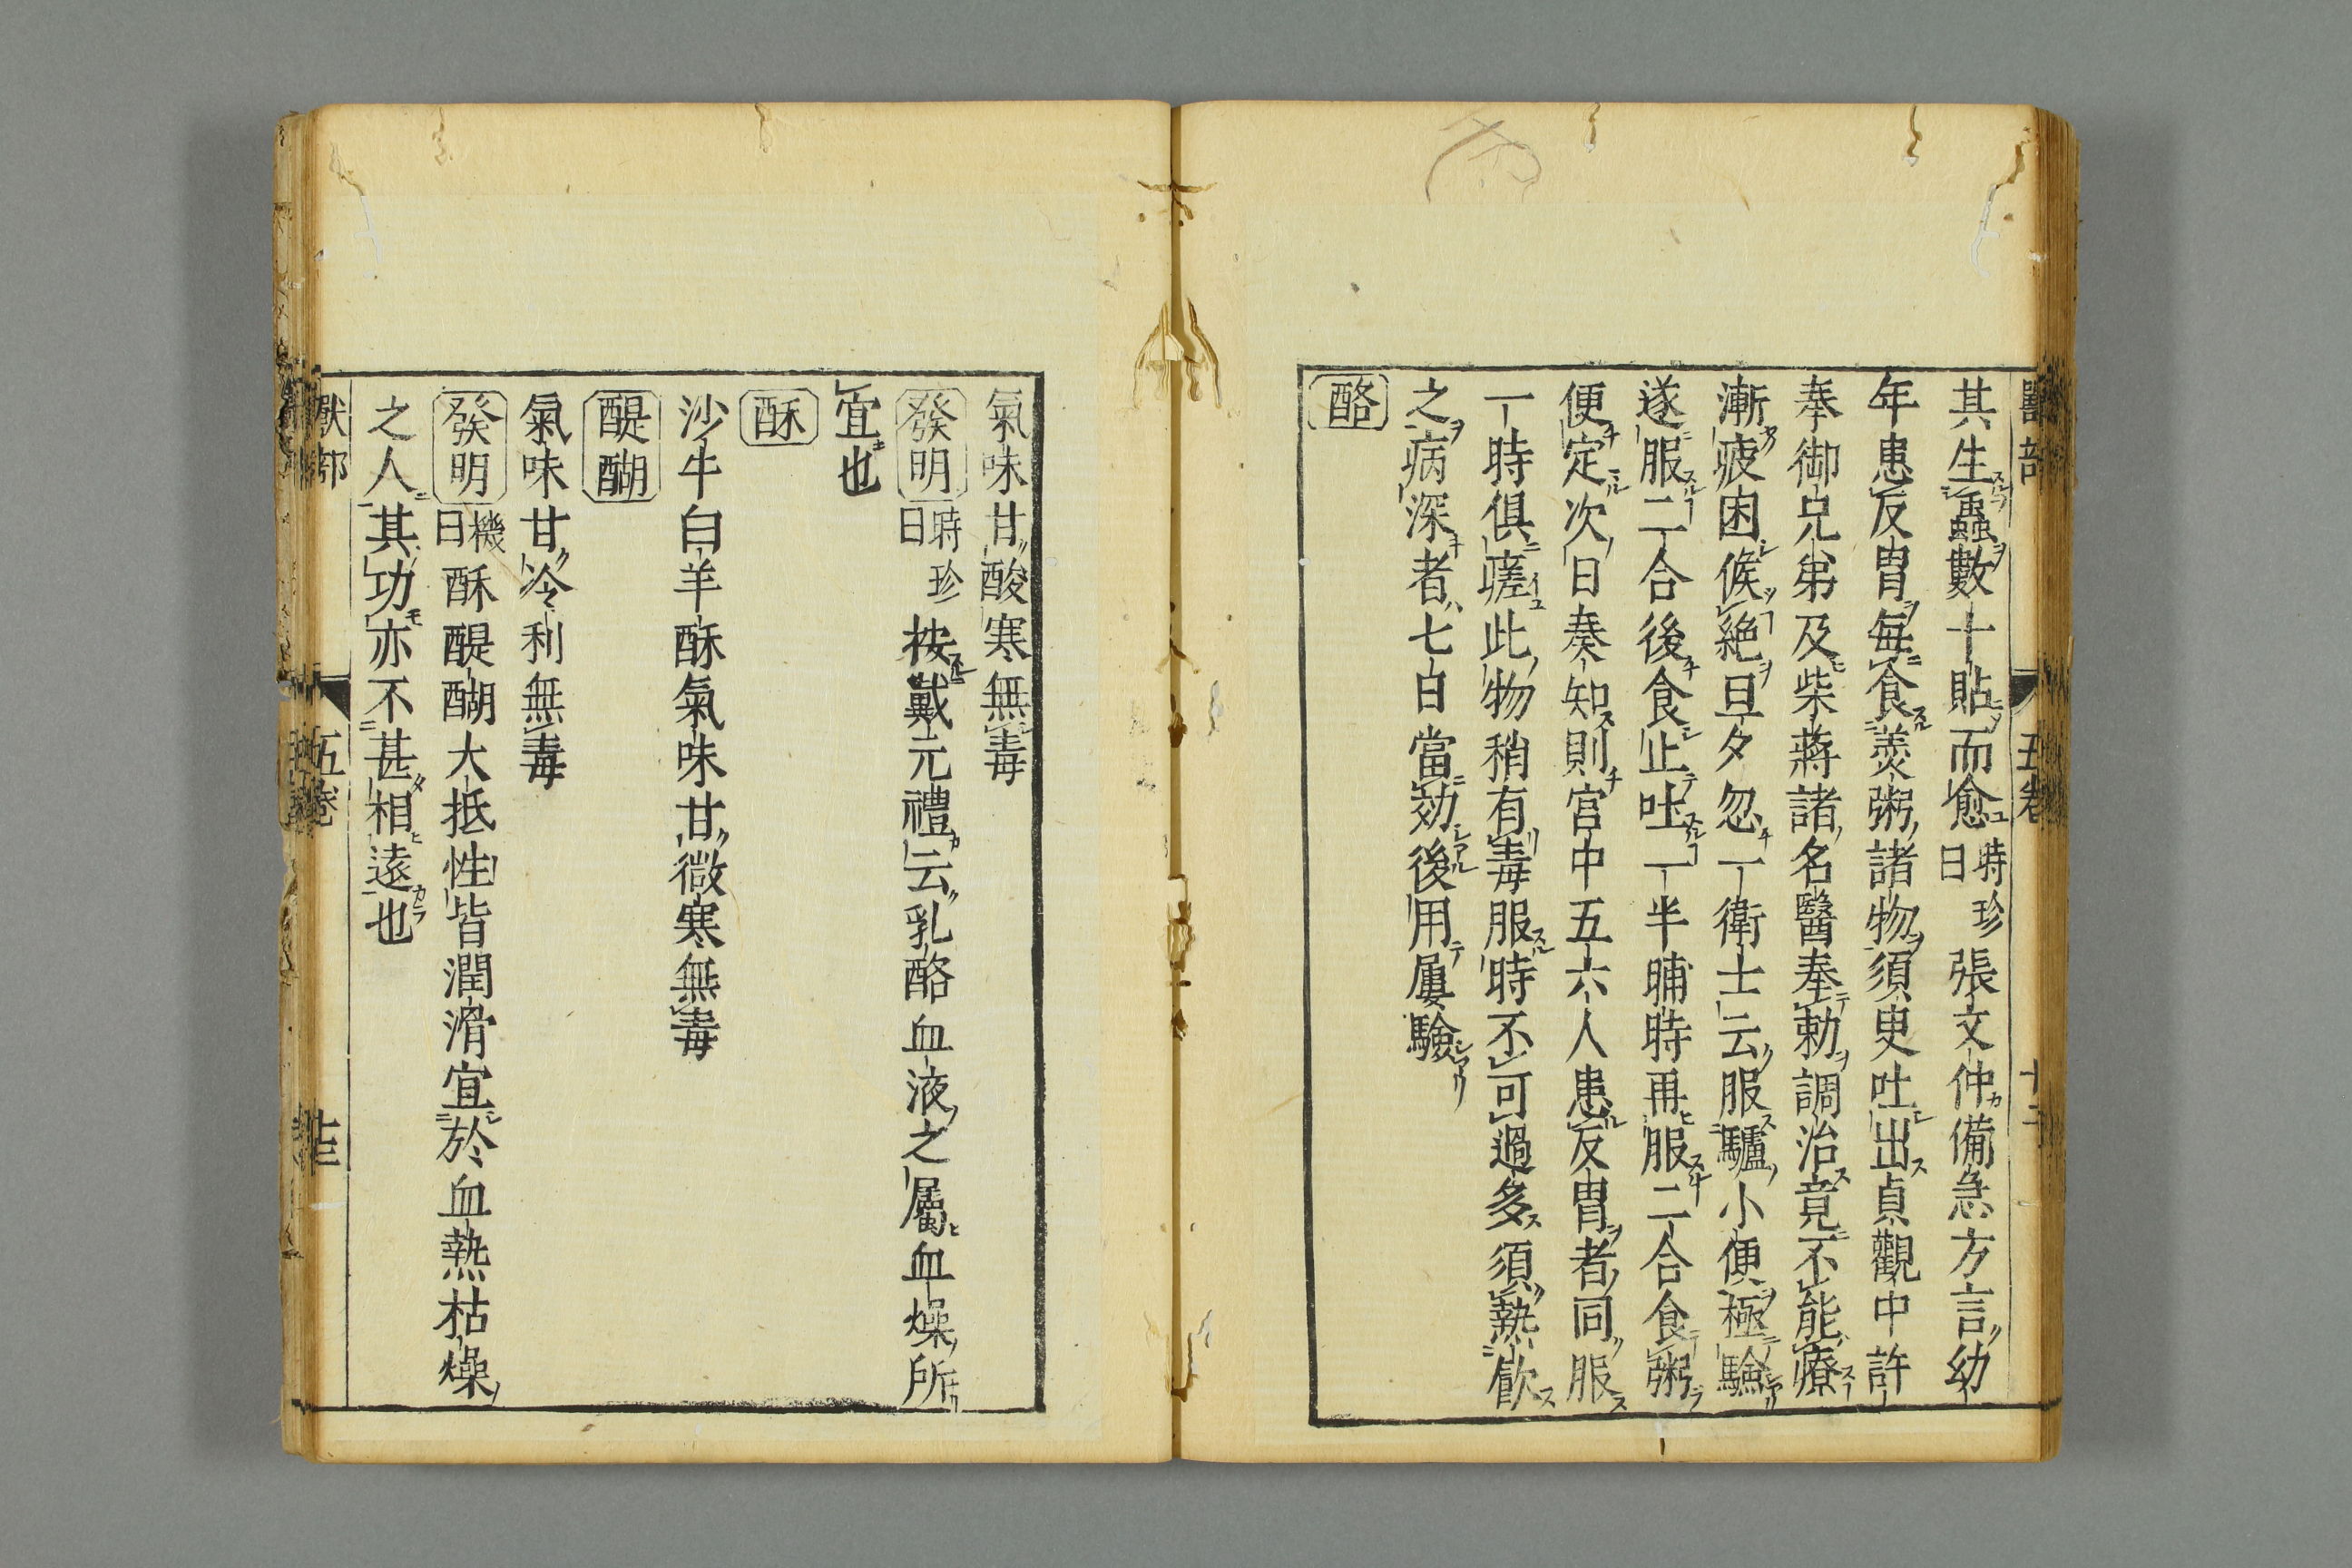 其生蟲數十貼而愈時珍曰張文仲備急方言幼
年患反胃毎食羹粥諸物須臾吐出貞觀中許
奉御兄弟及柴蔣諸名醫奉勅調治竟不能療
漸疲困候絶旦夕忽一衛士云服驢小便極驗
遂服二合後食止吐一半晡時再服二合食粥
便定次日奏知則宮中五六人患反胃者同服
一時俱瘥此物稍有毒服時不可過多須熱飲
之病深者七日當効後用屢驗
酪
氣味甘酸寒無毒
發明時珍曰按戴元禮云乳酪血液之屬血燥所
宜也
酥
沙牛白羊酥氣味甘微寒無毒
醍醐
氣味甘冷利無毒
發明機曰酥醍醐大抵性皆潤滑宜於血熱枯燥
之人其功亦不甚相遠也
獸部 五卷